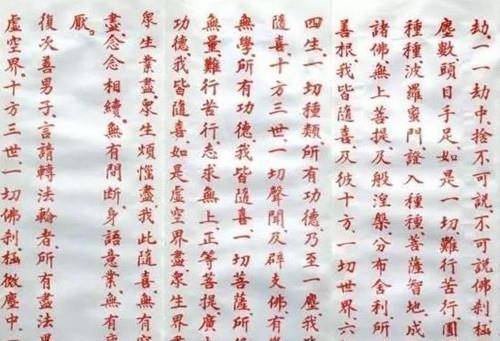 劫、一一劫中、捨不可說不可說佛剎極
塵數頭目手足、如是一切難行苦行、圓
種種波羅蜜門、證入種種菩薩智地、成
諸佛無上菩提、及般涅槃、分布舍利、所
善根、我皆隨喜、及彼十方、一切世界、六
四生、一切種類、所有功德、乃至一塵、我皆
隨喜、十方三世、一切聲聞、及辟支佛、有
無學、所有功德、我皆隨喜、一切菩薩、所
無量難行苦行、志求無上正等菩提、廣
功德、我皆隨喜、如是虛空界盡、眾生界盡
眾生業盡、眾生煩惱盡、我此隨喜、無有
盡、念念相續、無有間斷、身語意業、無有
厭。
復次善男子、言請轉法輪者、所有盡法界
虛空界、十方三世、一切佛剎極微塵中